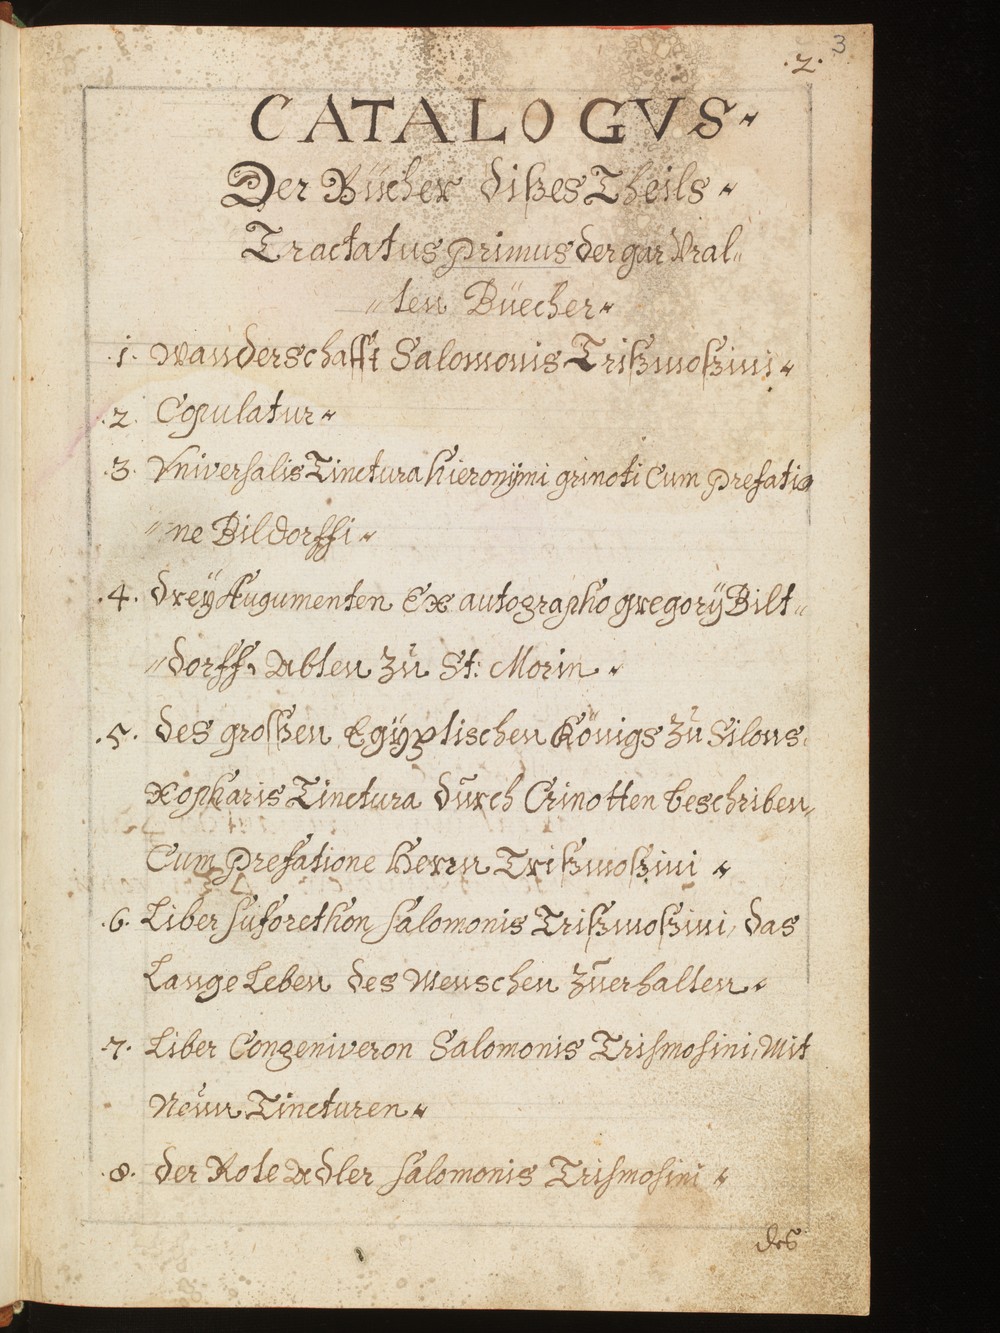 3
.2.
CATALOGVS
Der Bücher dißes Theils
Tractatus primus der gar Vral„
„ten Büecher
.1. Wanderschafft Salomonis Trißmoßini
.2. Copulatur
.3. Vniversalis Tinctura hieronÿmi grinoti Cum prefatio
„ne Bildorffi
.4. dreÿ Augumenten Ex autographo gregorÿ Bilt„
„dorff. Abten zu St: Morin
.5. des großen Egÿptischen Königs zu Silons.
Xopharis Tinctura durch Crinotten beschriben,
Cum Prefatione herrn Trißmoßini
.6. Liber suforethon Salomonis Trißmoßini, das
Lange Leben des Menschen zuerhalten
.7. Liber Congeniveron Salomonis Trismosini, Mit
Neun Tincturen
.8. der Rote Adler Salomonis Trismosini
des